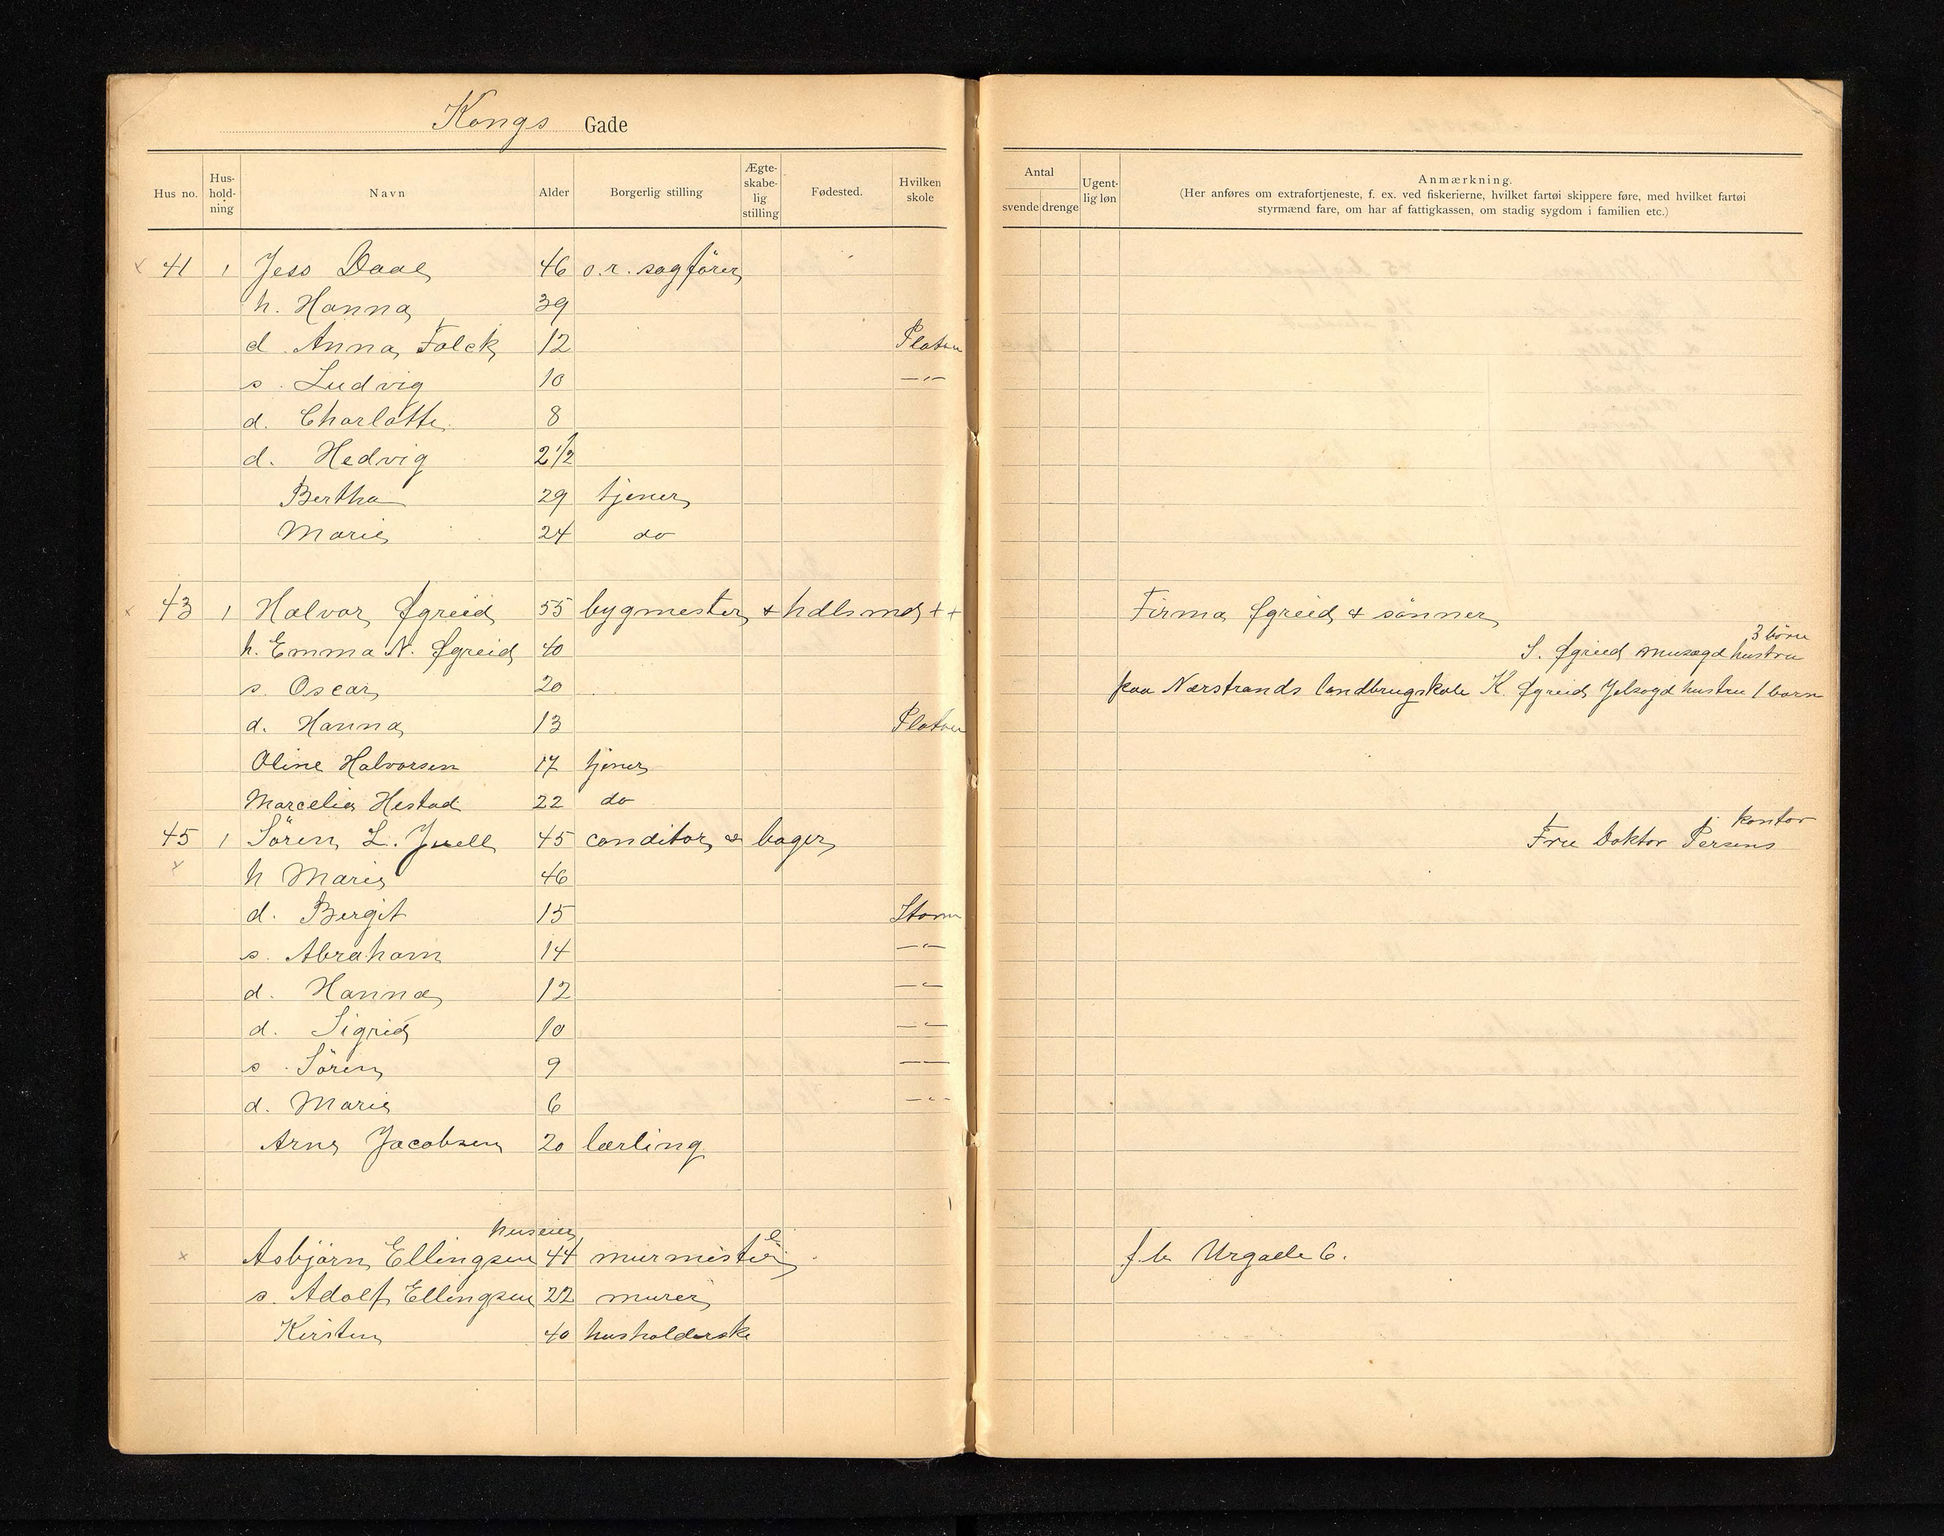 Kongs Gade
Hus no. Hus-hold-ning Navn Alder Borgerlig stilling Ægte-skabe-lig stilling Fødested. Hvilken skole
Antal svende drenge Ugent-lig løn Anmærkning.
(Her anføres om extrafortjeneste, f. ex. ved fiskerierne, hvilket fartøi skippere føre, med hvilket fartøi
styrmænd fare, om har af fattigkassen, om stadig sygdom i familien etc.)
x 41 1 Jess Daae 46 o.r. sagfører
h. Hanna 39
d. Anna Falck 12 Platou
s. Ludvig 10 —"—
d. Charlotte 8
d. Hedvig 2 1/2
Bertha 29 tjener
Marie 24 do
x 43 1 Halvor Øgreid 55 bygmester + hdlsmd ++ Firma Øgreid + sønner
3 børn
h. Emma N. Øgreid 40 S. Øgreid Musægd hustru
s. Oscar 20 paa Nærstrands landbrugskole K. Øgreid Jelsagd hustru 1 barn
d. Hanna 13 Platou
Oline Halvorsen 17 tjener
Marcelia Hestad 22 do
kontor
45 1 Sören L. Juell 45 conditor & bager Fru Doktor Persens
x h Marie 46
d. Bergit 15 Storm
s. Abraham 14 —"—
d. Hanna 12 —"—
d. Sigrid 10 —"—
s. Sören 9 —"—
d. Marie 6 —"—
Arne Jacobsen 20 lærling
huseier
x Asbjørn Ellingsen 44 murmester f.b. Urgade 6.
s. Adolf Ellingsen 22 murer
Kirsten 40 husholderske